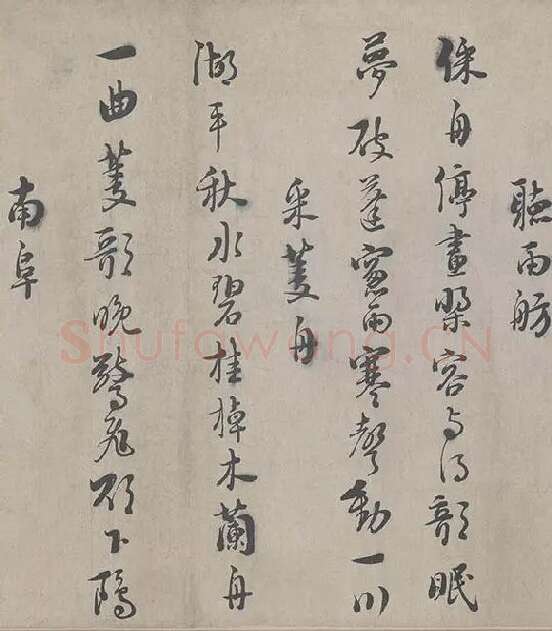 聽雨舫
綵舟停畫槳容与得欹眠
夢破蓬窻雨寒聲動一川
采菱舟
湖平秋水碧桂棹木蘭舟
一曲菱歌晚驚飛欲下鷗
南阜
Shufawang.CN